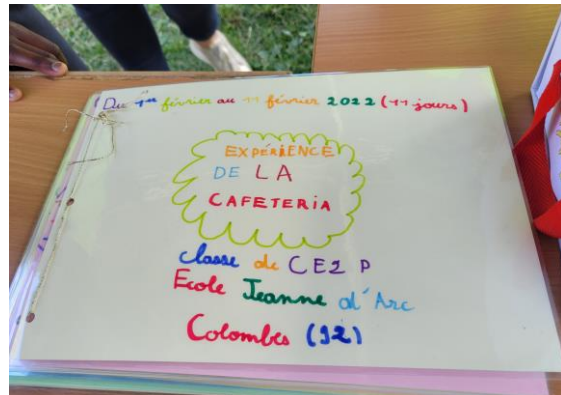 Du 1er février au 11 février 2022 (11 jours)
EXPÉRIENCE
DE LA
CAFETERIA
classe de CE2 P
Ecole Jeanne d'Arc
Colombes (92)